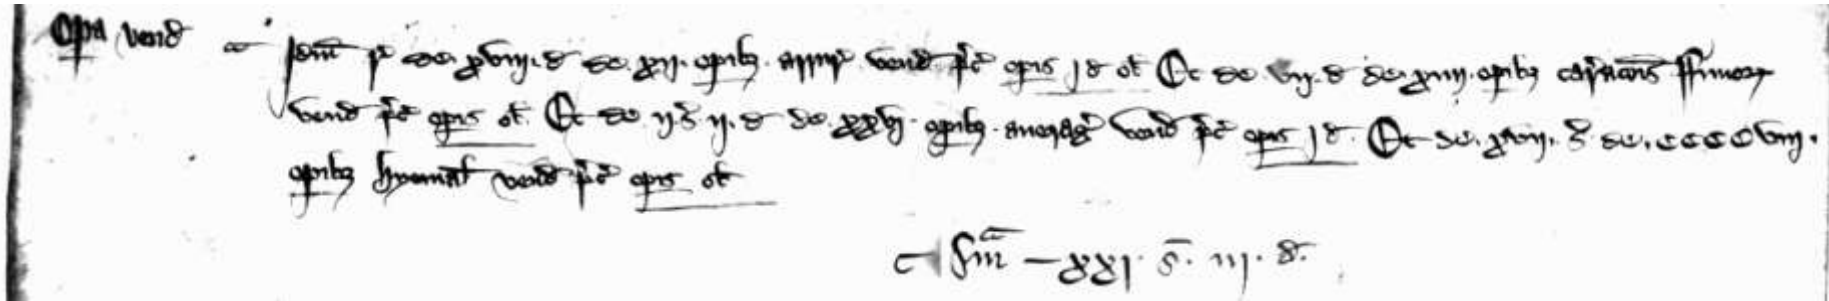 Opa vend
Idm r de xviij. d de xij. opibȝ arrur vend prc opis j d ob Et de vij. d de xiiij. opibȝ cariacōis fimorꝝ
vend prc opis ob. Et de ij s ij. d de xxvj. opibȝ averag vend prc opis j d. Et de xvij. s de ccccviij.
opibȝ hyemal vend prc opis ob
Sma xxj. s. iij. d.